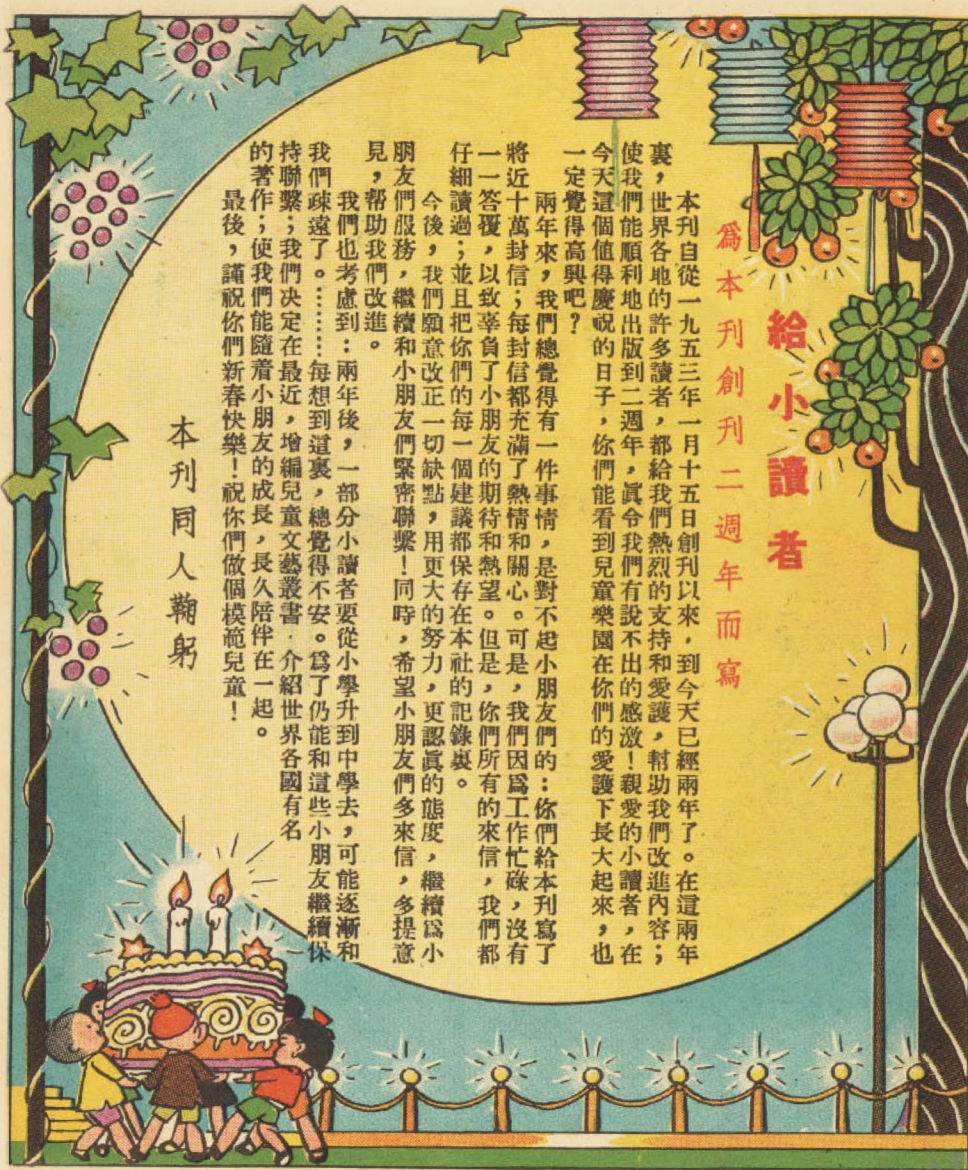 給小讀者
爲本刊創刊二週年而寫
本刊自從一九五三年一月十五日創刊以來，到今天已經兩年了。在這兩年
裏，世界各地的許多讀者，都給我們熱烈的支持和愛護，幫助我們改進內容；
使我們能順利地出版到二週年，眞令我們有說不出的感激！親愛的小讀者，在
今天這個值得慶祝的日子，你們能看到兒童樂園在你們的愛護下長大起來，也
一定覺得高興吧？
兩年來，我們總覺得有一件事情，是對不起小朋友們的：你們給本刊寫了
將近十萬封信；每封信都充滿了熱情和關心。可是，我們因爲工作忙碌，沒有
一一答覆，以致辜負了小朋友的期待和熱望。但是，你們所有的來信，我們都
仔細讀過；並且把你們的每一個建議都保存在本社的記錄裏。
今後，我們願意改正一切缺點，用更大的努力，更認眞的態度，繼續爲小
朋友們服務，繼續和小朋友們緊密聯繫！同時，希望小朋友們多來信，多提意
見，帮助我們改進。
我們也考慮到：兩年後，一部分小讀者要從小學升到中學去，可能逐漸和
我們疎遠了。………每想到這裏，總覺得不安。爲了仍能和這些小朋友繼續保
持聯繫；我們決定在最近，增編兒童文藝叢書，介紹世界各國有名
的著作；使我們能隨着小朋友的成長，長久陪伴在一起。
最後，謹祝你們新春快樂！祝你們做個模範兒童！
本刊同人鞠躬